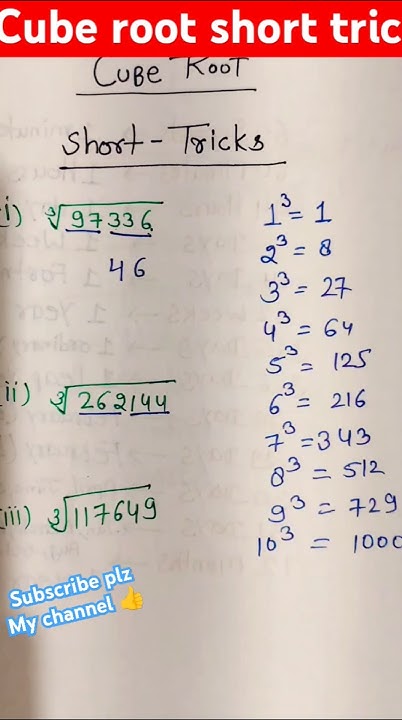 Cube root short tric
CUBE ROOT
Short - Tricks
i) ∛97336
46
ii) ∛262144
iii) ∛117649
1³ = 1
2³ = 8
3³ = 27
4³ = 64
5³ = 125
6³ = 216
7³ = 343
8³ = 512
9³ = 729
10³ = 1000
Subscribe plz
My channel 👍